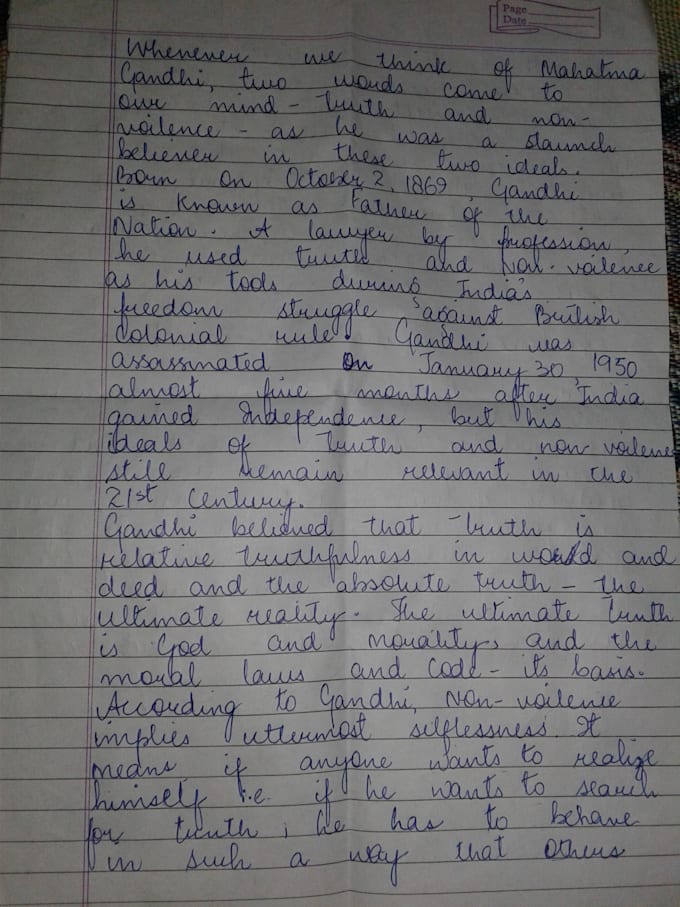 Page
Date
Whenever we think of Mahatma
Gandhi, two words come to
our mind - truth and non-
voilence - as he was a staunch
believer in these two ideals.
Born on October 2, 1869, Gandhi
is known as Father of the
Nation. A lawyer by profession,
he used truth and Non-voilence
as his tools during India's
freedom struggle against British
colonial rule. Gandhi was
assassinated on January 30, 1950
almost five months after India
gained Independence, but his
ideals of truth and non voilence
still remain relevant in the
21st Century.
Gandhi believed that truth is
relative truthfulness in world and
deed and the absolute truth - the
ultimate reality. The ultimate truth
is God and morality, and the
moral laws and code - its basis.
According to Gandhi, Non-voilence
implies uttermost selflessness. It
means if anyone wants to realize
himself i.e. if he wants to search
for truth, he has to behave
in such a way that others